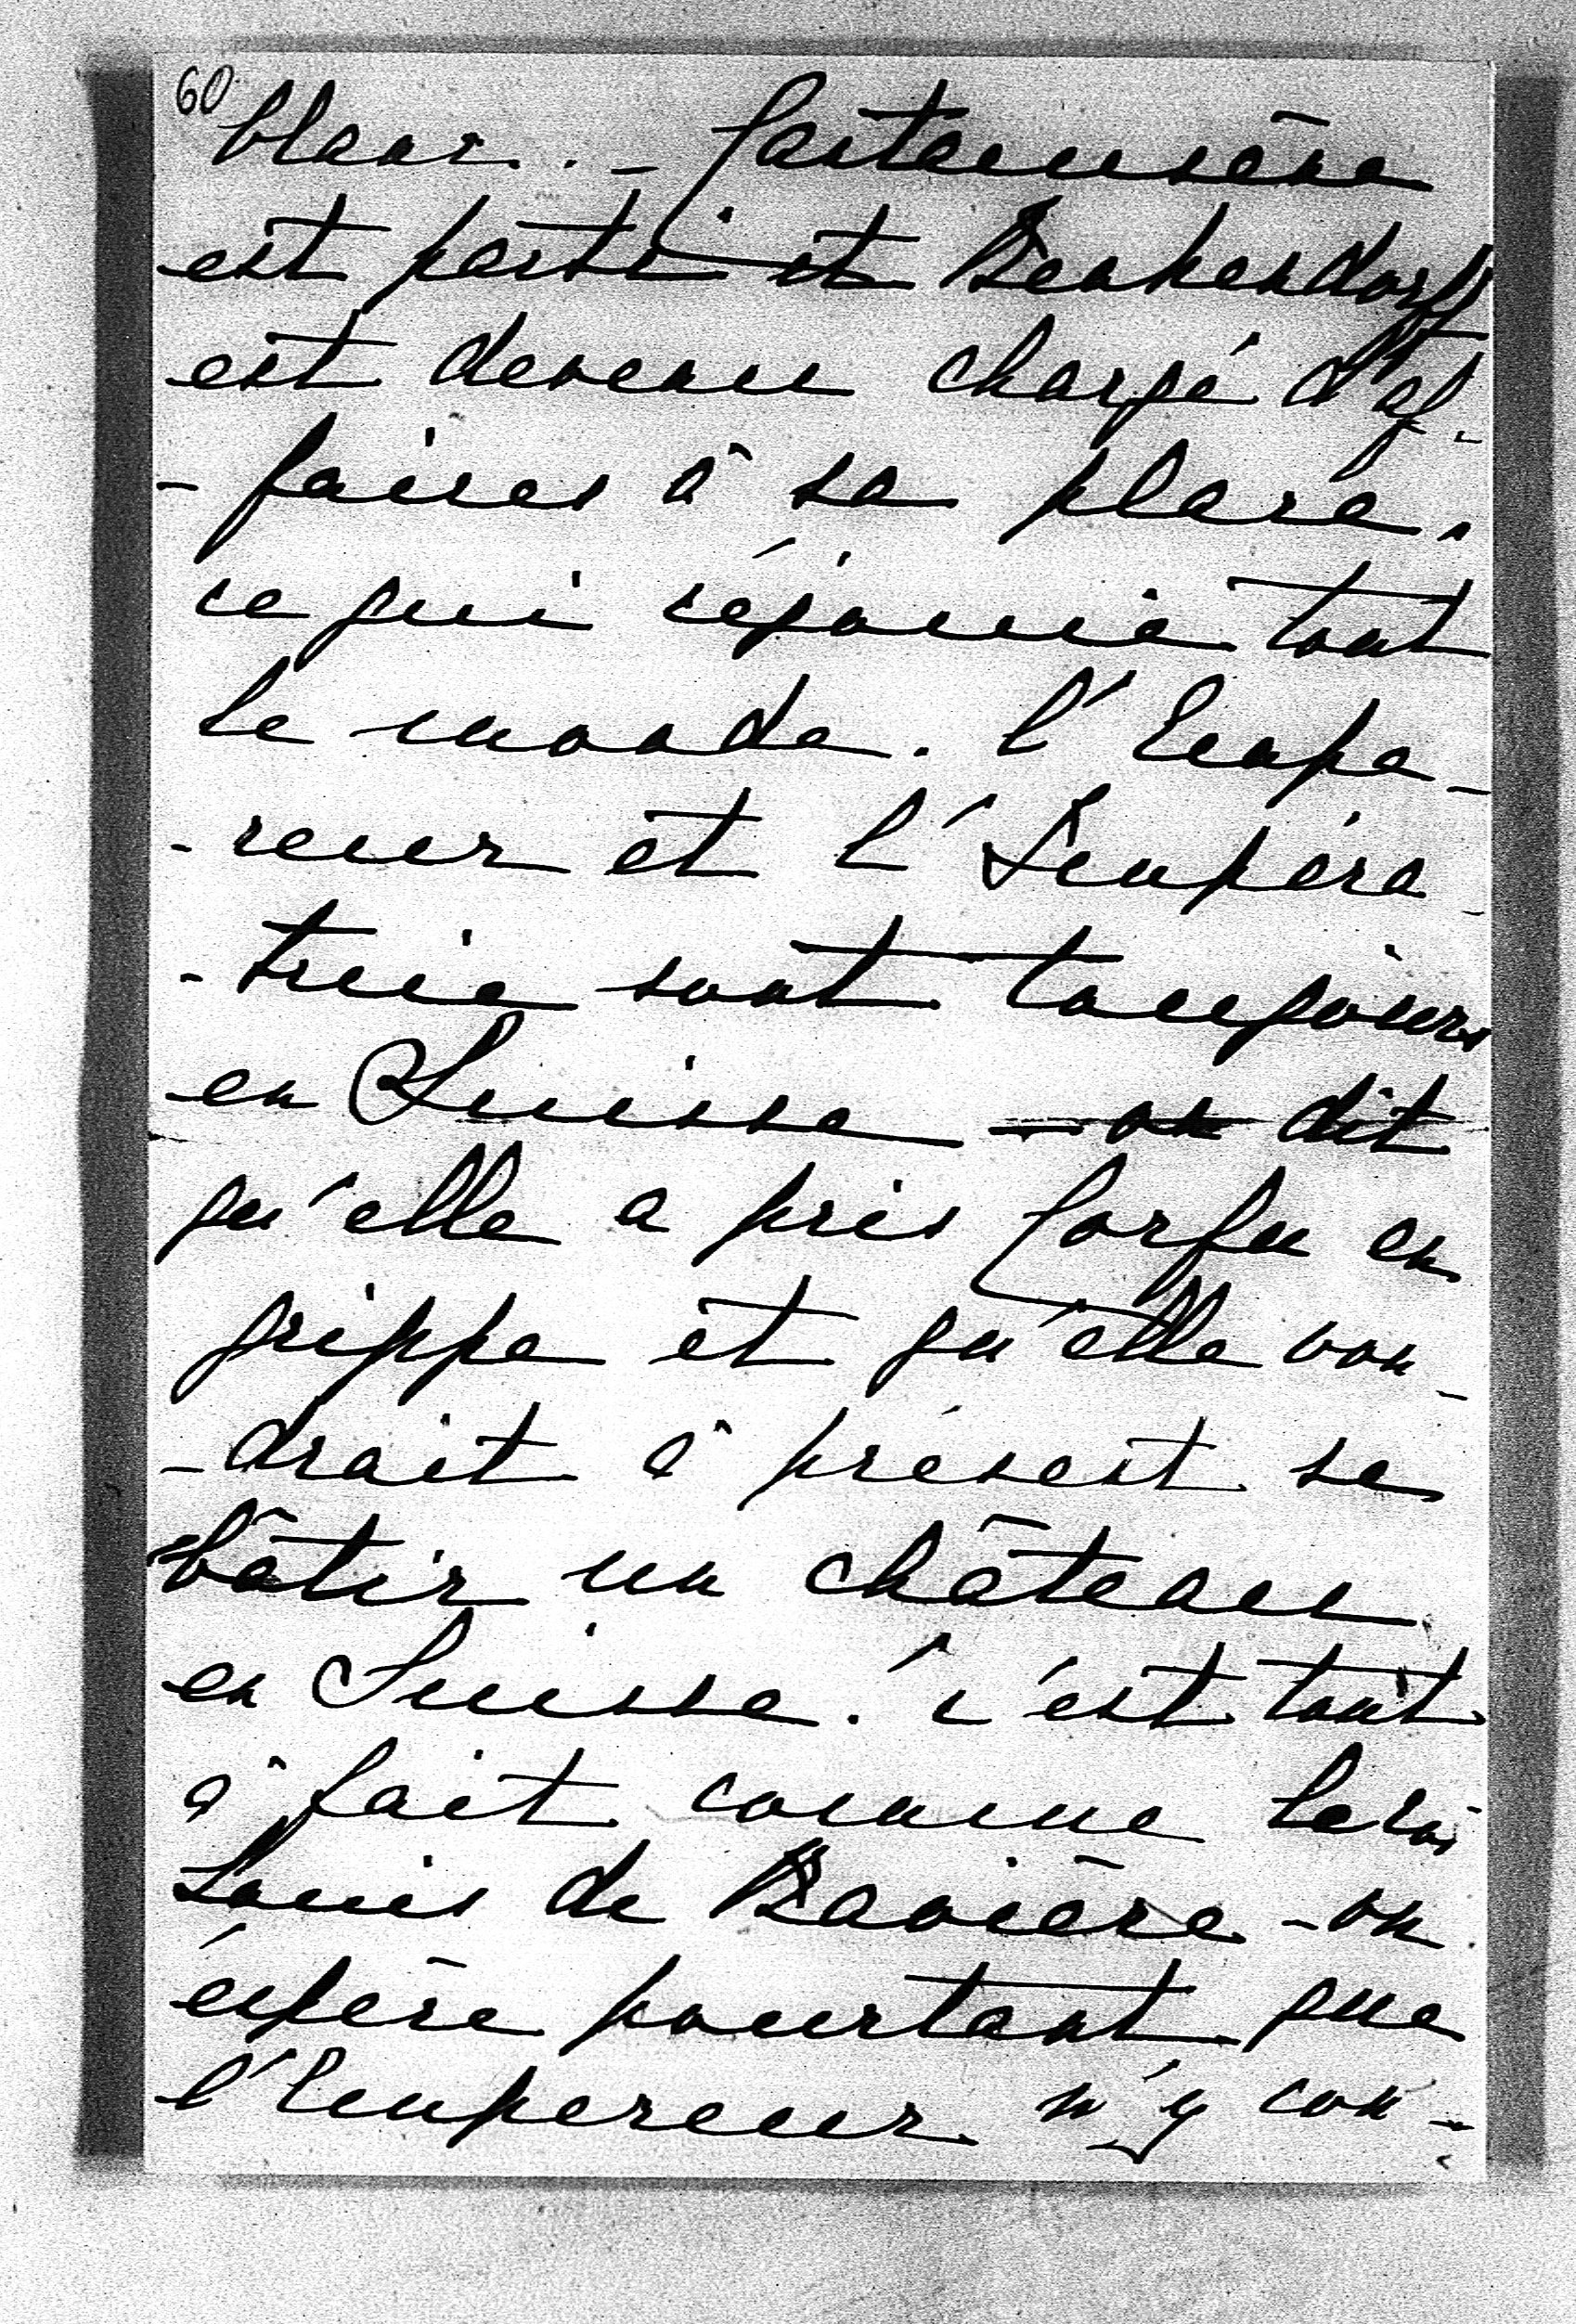 60
blanc.. — Cantacuzène
est parti et Benkendorff
est devenu chargé d'af-
-faires à sa place,
ce qui réjouie tout
le monde. l'Empe-
-reur et l'Impéra-
-trice sont toujours
en Suisse — on dit
qu'elle a pris Corfu en
grippe et qu'elle vou-
-drait à présent se
bâtir un château
en Suisse. c'est tout
à fait comme le roi
Louis de Bavière - on
éspère pourtant que
l'Empereur n'y con-